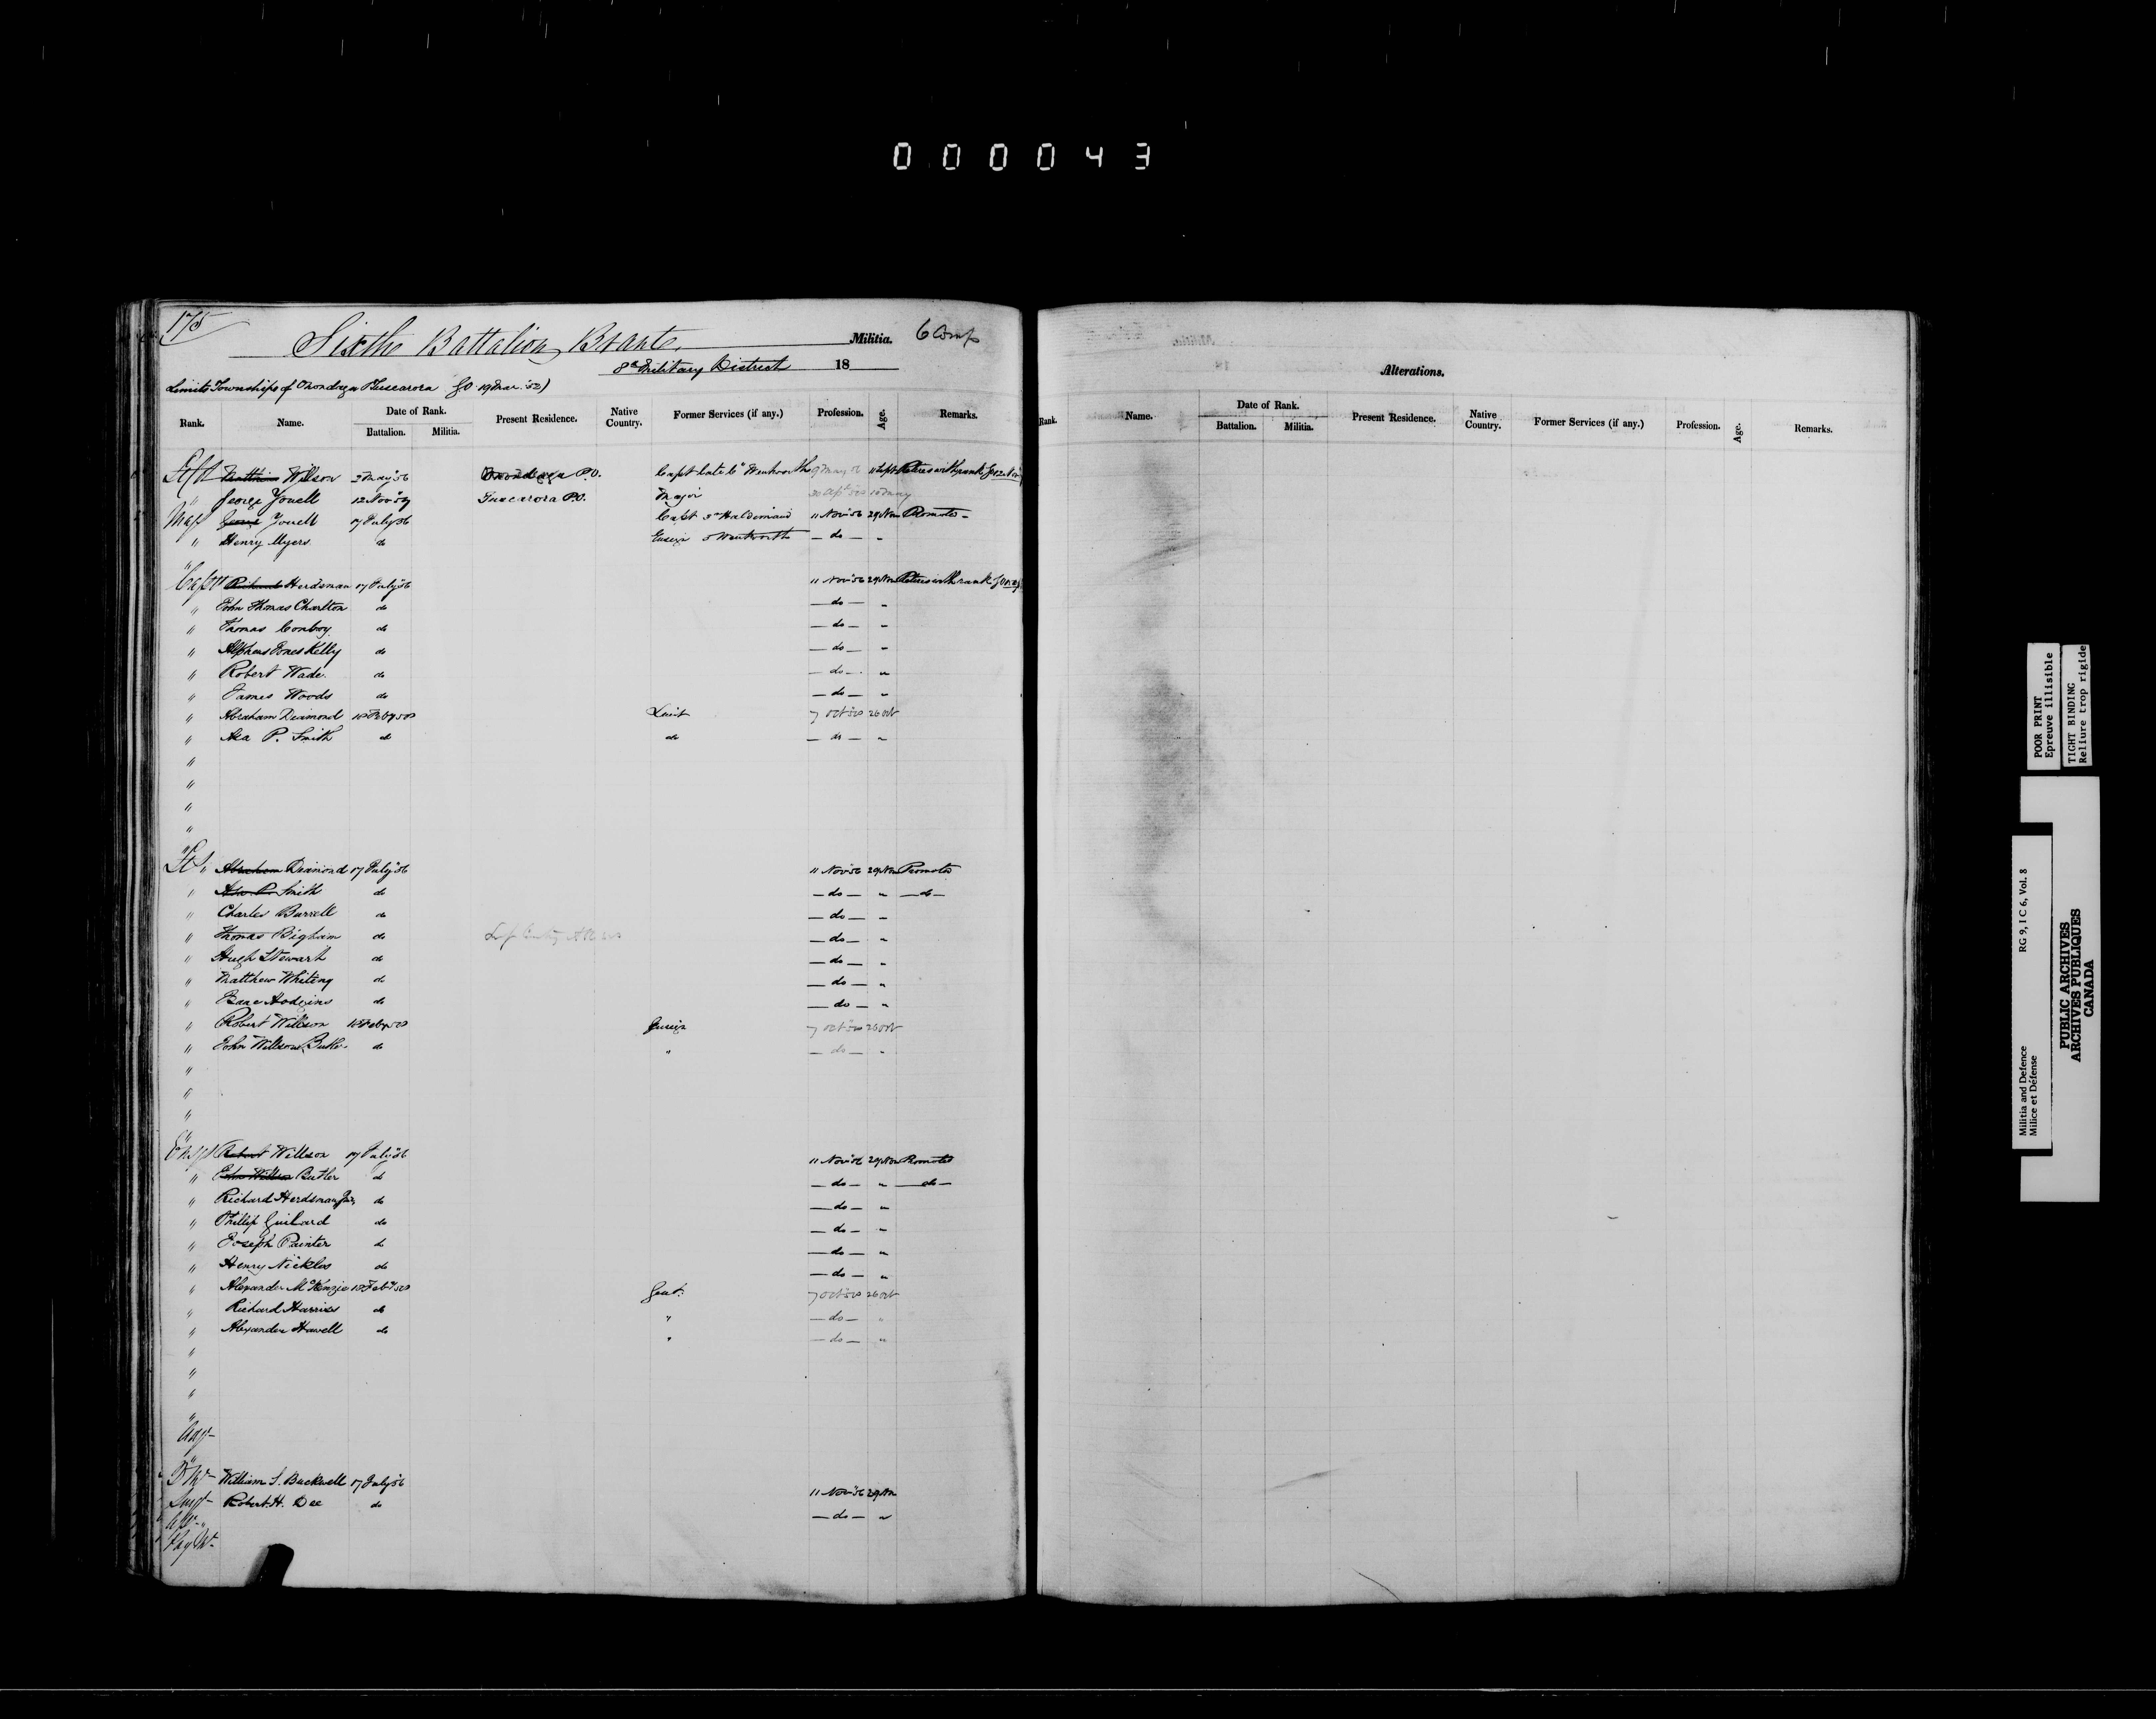 000043
175
Sixth Battalion Brant Militia. 6 Comp
8th Military District 18
Limits Townships of Onondaga & Tuscarora G.O. 19 Mar. '52)
Alterations.
Rank. Name. Date of Rank. Battalion. Militia. Present Residence. Native Country. Former Services (if any.) Profession. Age. Remarks.
Rank. Name. Date of Rank. Battalion. Militia. Present Residence. Native Country. Former Services (if any.) Profession. Age. Remarks.
Willson 2 May 56 Onondaga P.O. Capt late 6" Wentworth 9 May 56 11 Sept Retires with rank
" George Youell 12 Nov 57 Tuscarora P.O. Major 10 May
Maj George Youell 17 July 56 Capt 3rd Haldimand 11 Nov 56 29 Nov Promoted
" Henry Myers do Ensign 5 Wentworth — do — "
Capt Richard Herdsman 17 July 56 11 Nov 56 29 Nov Retires with rank
" John Thomas Charlton do — do — "
" Thomas Conboy do — do — "
" Alpheus Jones Kelly do — do — "
" Robert Wade do — do — "
" James Woods do — do — "
" Abraham Diamond 18 Feby 58 Lieut 7 Oct 58 26 Oct
" Asa P. Smith do do — do — "
"
"
"
"
Lt Abraham Diamond 17 July 56 11 Nov 56 29 Nov Promoted
" Asa P. Smith do — do — " — do —
" Charles Burrell do — do — "
" Thomas Bigham do — do — "
" Hugh Stewart do — do — "
" Matthew Whiting do — do — "
" Isaac Hodgins do — do — "
" Robert Willson 18 Feby 58 Ensign 7 Oct 58 26 Oct
" John Willson Butler do " — do — "
"
"
"
"
Ens Robert Willson 17 July 56 11 Nov 56 29 Nov Promoted
" John Willson Butler do — do — " — do —
" Richard Herdsman Junr do — do — "
" Phillip Guilard do — do — "
" Joseph Painter do — do — "
" Henry Nickles do — do — "
" Alexander McKenzie 18 Feby 58 Gent. 7 Oct 58 26 Oct
" Richard Harris do " — do — "
" Alexander Howell do " — do — "
"
"
"
"
Adjt
William S. Buckwell 17 July 56 11 Nov 56 29 Nov
Surgn Robert H. Dee do — do — "
Pay Mr
POOR PRINT
Epreuve illisible
TIGHT BINDING
Reliure trop rigide
Militia and Defence RG 9, I C 6, Vol. 8
Milice et Défense
PUBLIC ARCHIVES
ARCHIVES PUBLIQUES
CANADA